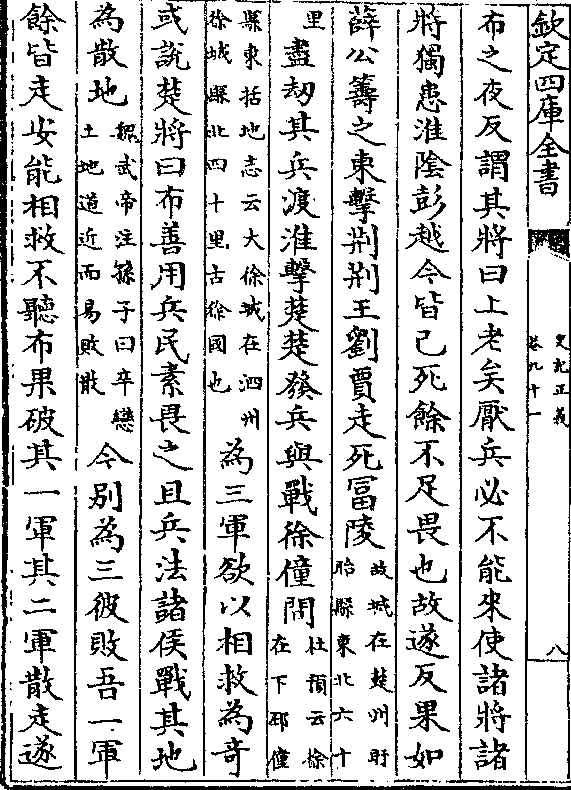 欽定四庫全書
史記正義
卷九十一
八
布之夜反謂其將曰上老矣厭兵必不能來使諸將諸
將獨患淮陰彭越今皆已死餘不足畏也故遂反果如
薛公籌之東擊荆荆王劉賈走死冨陵故城在楚州盱眙縣東北六十
里盡刼其兵渡淮擊楚楚發兵與戰徐僮間杜預云徐在下邳僮
縣東括地志云大徐城在泗州徐城縣北四十里古徐國也為三軍欲以相救為奇
或說楚將曰布善用兵民素畏之且兵法諸侯戰其地
為散地魏武帝注孫子曰卒戀土地道近而易敗散今别為三彼敗吾一軍
餘皆走安能相救不聽布果破其一軍其二軍散走遂